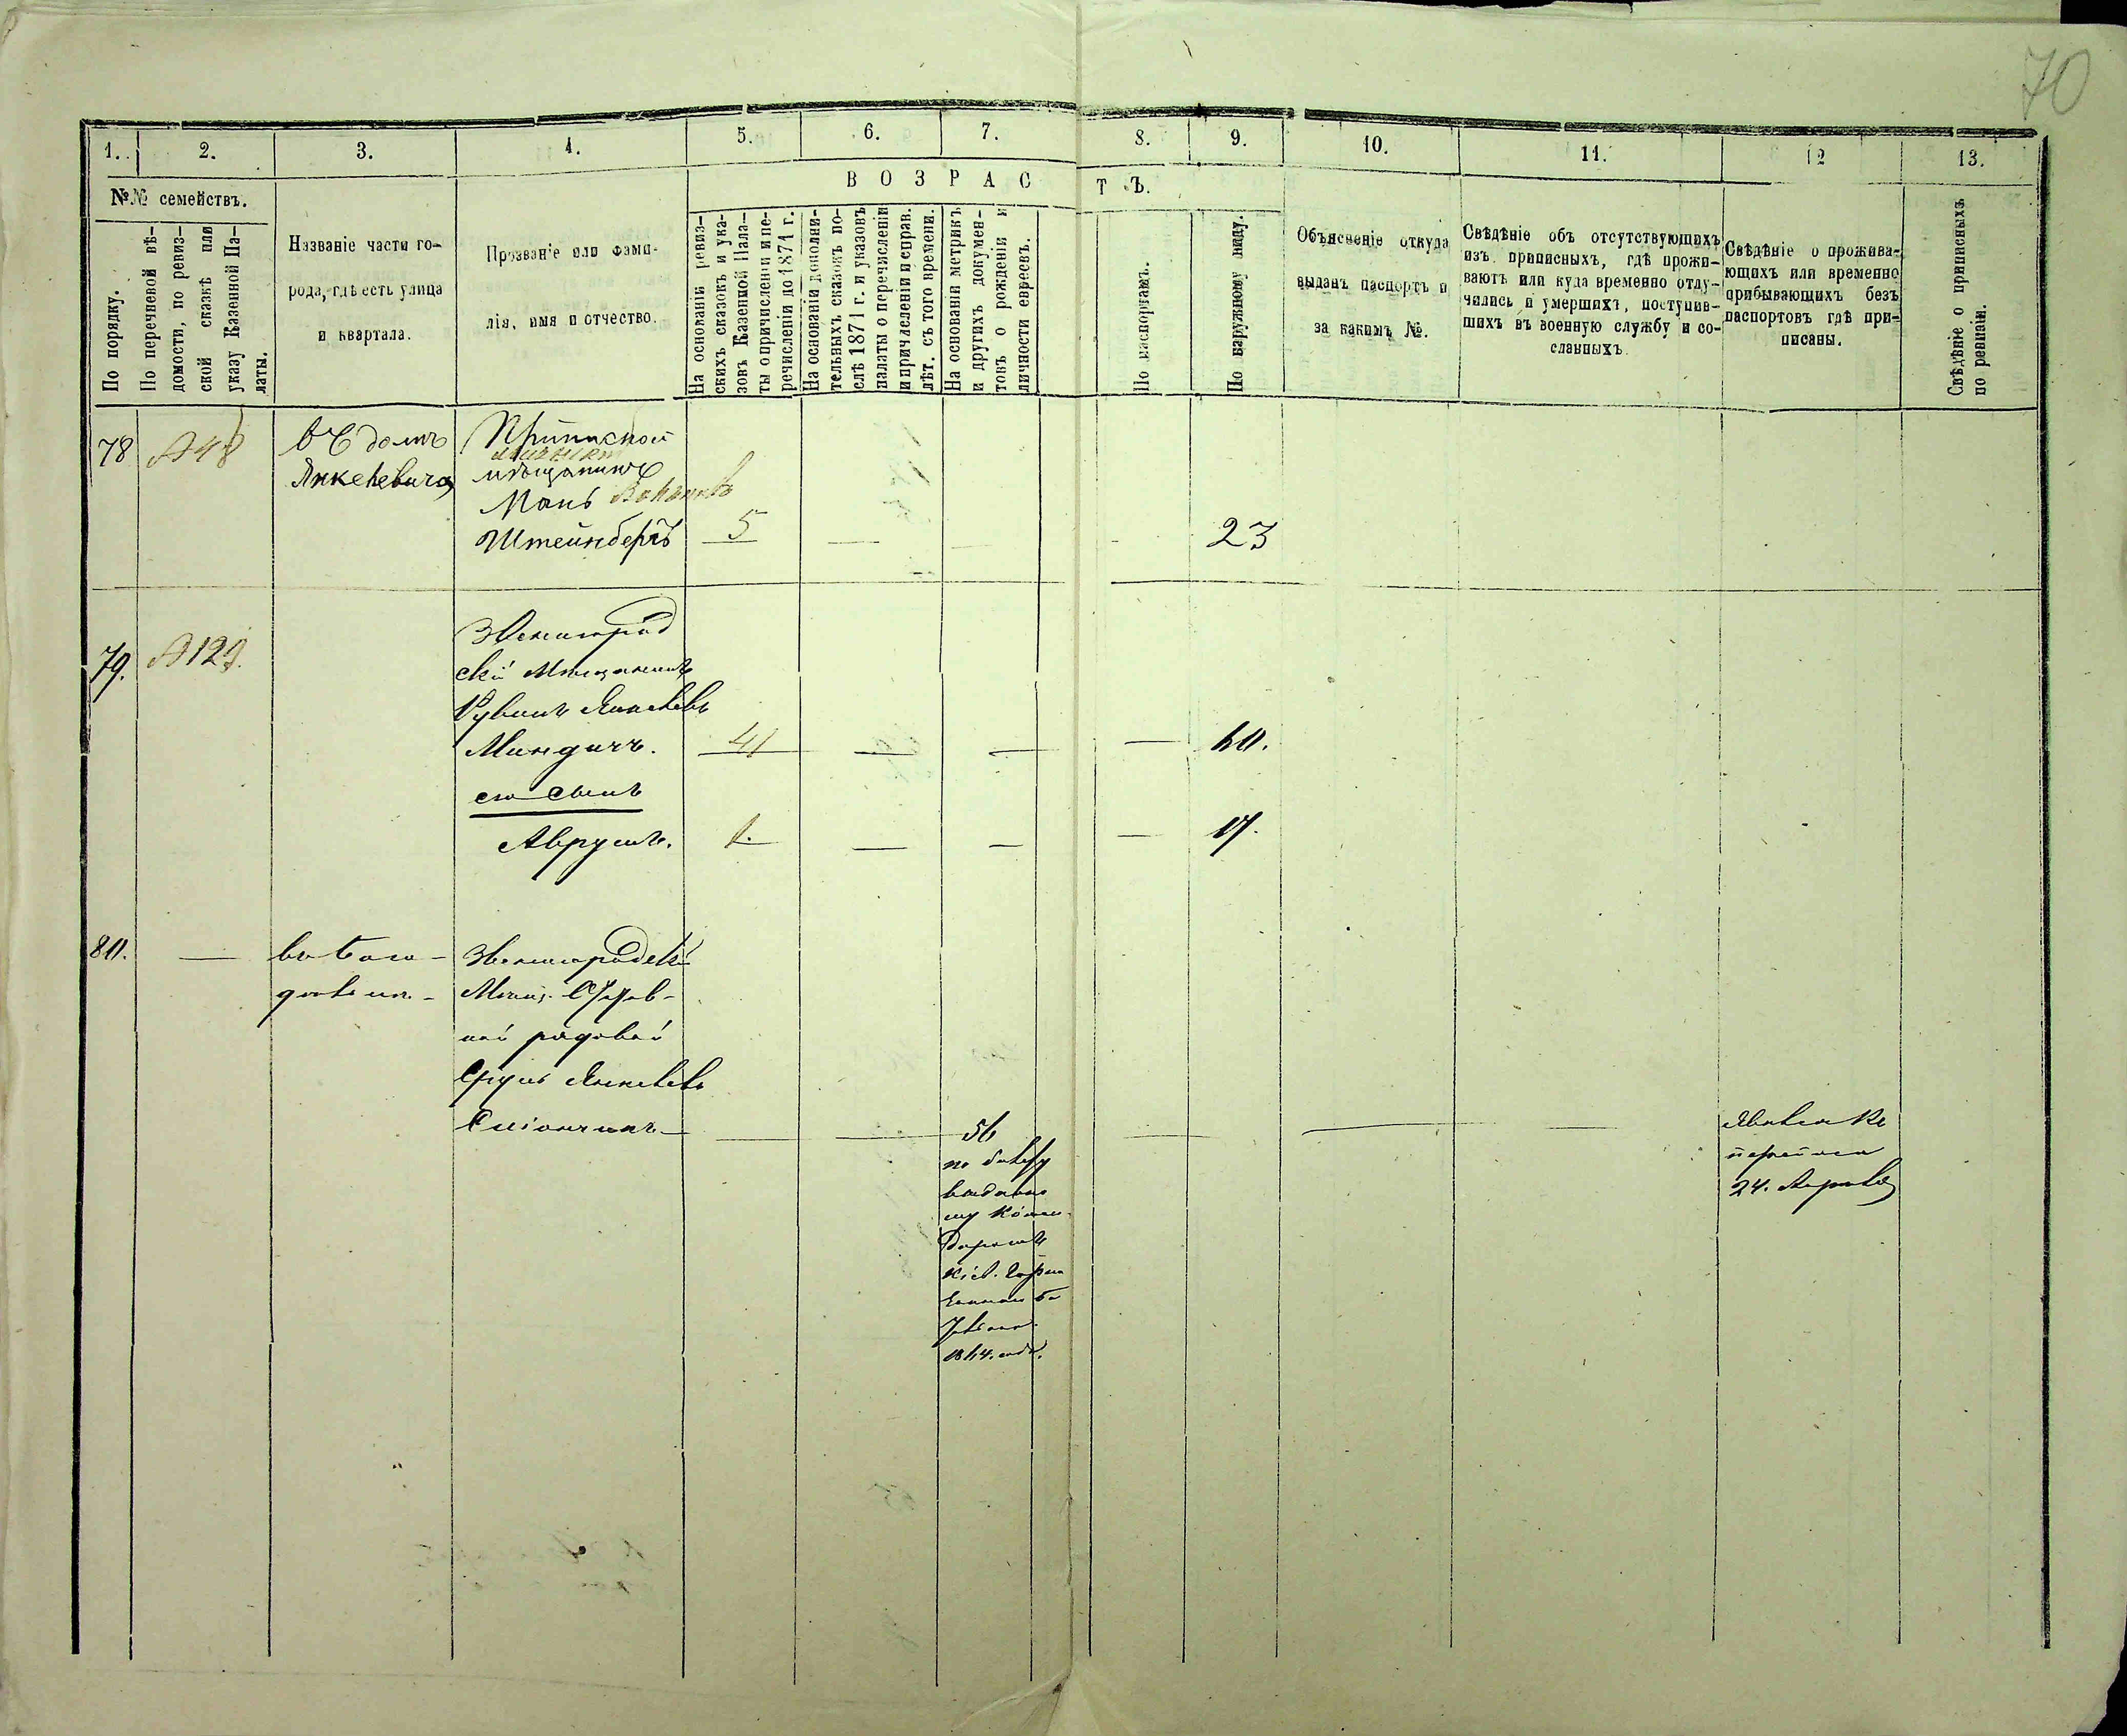 70
1. 2. 3. 4. 5. 6. 7. 8. 9. 10. 11. 12 13.
№№ семействъ.
По порядку.
По перечневой вѣ-
домости, по ревиз-
ской сказкѣ или
указу Казенной Па-
латы.
Названіе части го-
рода, гдѣ есть улица
и квартала.
Прозваніе или фами-
лія, имя и отчество.
ВОЗРАСТЪ.
На основаніи ревиз-
скихъ сказокъ и ука-
зовъ Казенной Пала-
ты о причисленіи и пе-
речисленіи до 1871 г.
На основаніи дополни-
тельныхъ сказокъ по-
слѣ 1871 г. и указовъ
палаты о перечисленіи
и причисленіи и справ.
лѣт. съ того времени.
На основаніи метрикъ
и другихъ докумен-
товъ о рожденіи и
личности евреевъ.
По паспортамъ.
По наружному виду.
Объясненіе откуда
выданъ паспортъ и
за какимъ №.
Свѣдѣніе объ отсутствующихъ
изъ приписныхъ, гдѣ прожи-
ваютъ или куда временно отлу-
чились и умершихъ, поступив-
шихъ въ военную службу и со-
сланныхъ.
Свѣдѣніе о прожива-
ющихъ или временно
прибывающихъ безъ
паспортовъ гдѣ при-
писаны.
Свѣдѣніе о приписныхъ
по ревизіи.
78 48 въ домѣ Приписной
Янкелевича мѣщанинъ
Штейнбергъ 5 — — - 23
79. 129. Звенигород
скій Мѣщанинъ
Рувинъ Янкелевъ
Миндичъ. 41 — — — 40.
его сынъ
Аврумъ. 1. — — — 17.
80. — Звенигородскій
рядовой
Сруль Янкелевъ
— — 56 — — —
по билету
выданно
му Коман
диромъ
Кіев.
24. Апрѣля